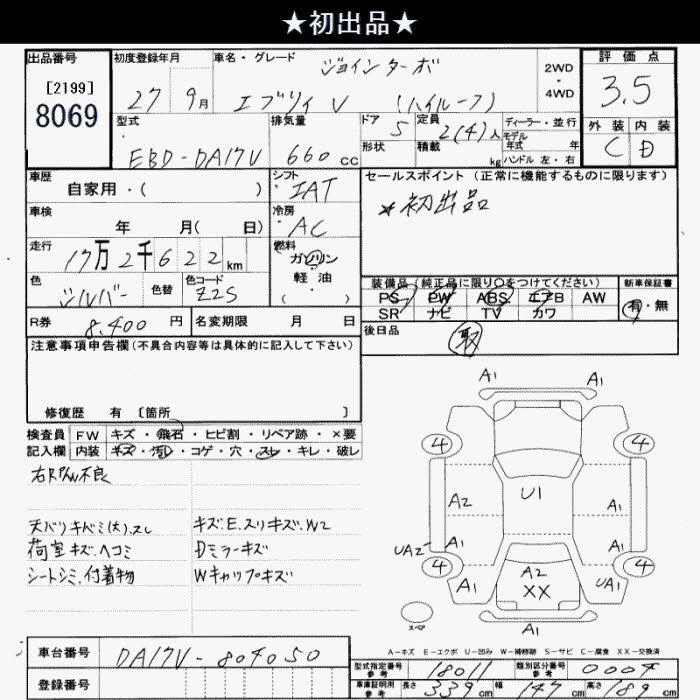 ★初出品★
出品番号
[2199]
8069
初度登録年月
27 9月
車名・グレード
ジョインターボ
エブリィ V (ハイルーフ)
2WD
・
4WD
評価点
3.5
外装 内装
C D
型式
EBD-DA17V
排気量
660 cc
ドア 5
形状
定員 2(4)人
積載 kg
ディーラー・並行
モデル
年式 年
ハンドル 左・右
車歴
自家用・( )
シフト
IAT
セールスポイント (正常に機能するものに限ります)
*初出品
車検
年 月( 日)
冷房
AC
走行
17万2千622km
燃料
ガソリン
軽油
( )
色
シルバー
色替
色コード
Z2S
装備品 (純正品に限り○をつけてください)
PS PW ABS エアB AW
SR ナビ TV カワ
新車保証書
有・無
R券
8,400 円
名変期限 月 日
後日品
取
注意事項申告欄 (不具合内容等は具体的に記入して下さい)
修復歴 有 〔箇所 〕
検査員 FW キズ・飛石・ヒビ割・リペア跡・×要
記入欄 内装 キズ・汚レ・コゲ・穴・スレ・キレ・破レ
天バリキバミ(大).スレ
荷室キズ.ヘコミ
シートシミ.付着物
キズE.スリキズ.W2
Dミラーキズ
Wキャップキズ
A1 A1
4 4
U1
A2 A1
UA2 A1 A1
4 4
A1 A2 UA1
XX
A1
スペア
A－キズ E－エクボ U－凹み W－補修跡 S－サビ C－腐食 XX－交換済
車台番号
DA17V-804050
登録番号
型式指定番号
参考
18011
類別区分番号
参考
0004
車庫証明用
参考
長さ 339cm 幅 147cm 高さ 189cm